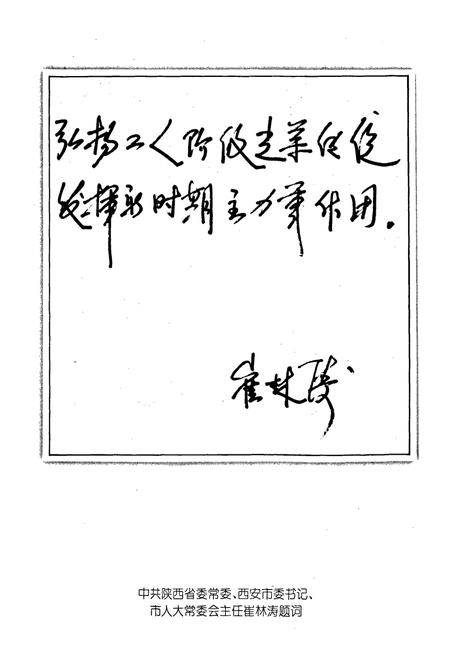 弘扬工人阶级光荣传统
发挥新时期主力军作用。
崔林涛
中共陕西省委常委、西安市委书记、
市人大常委会主任崔林涛题词